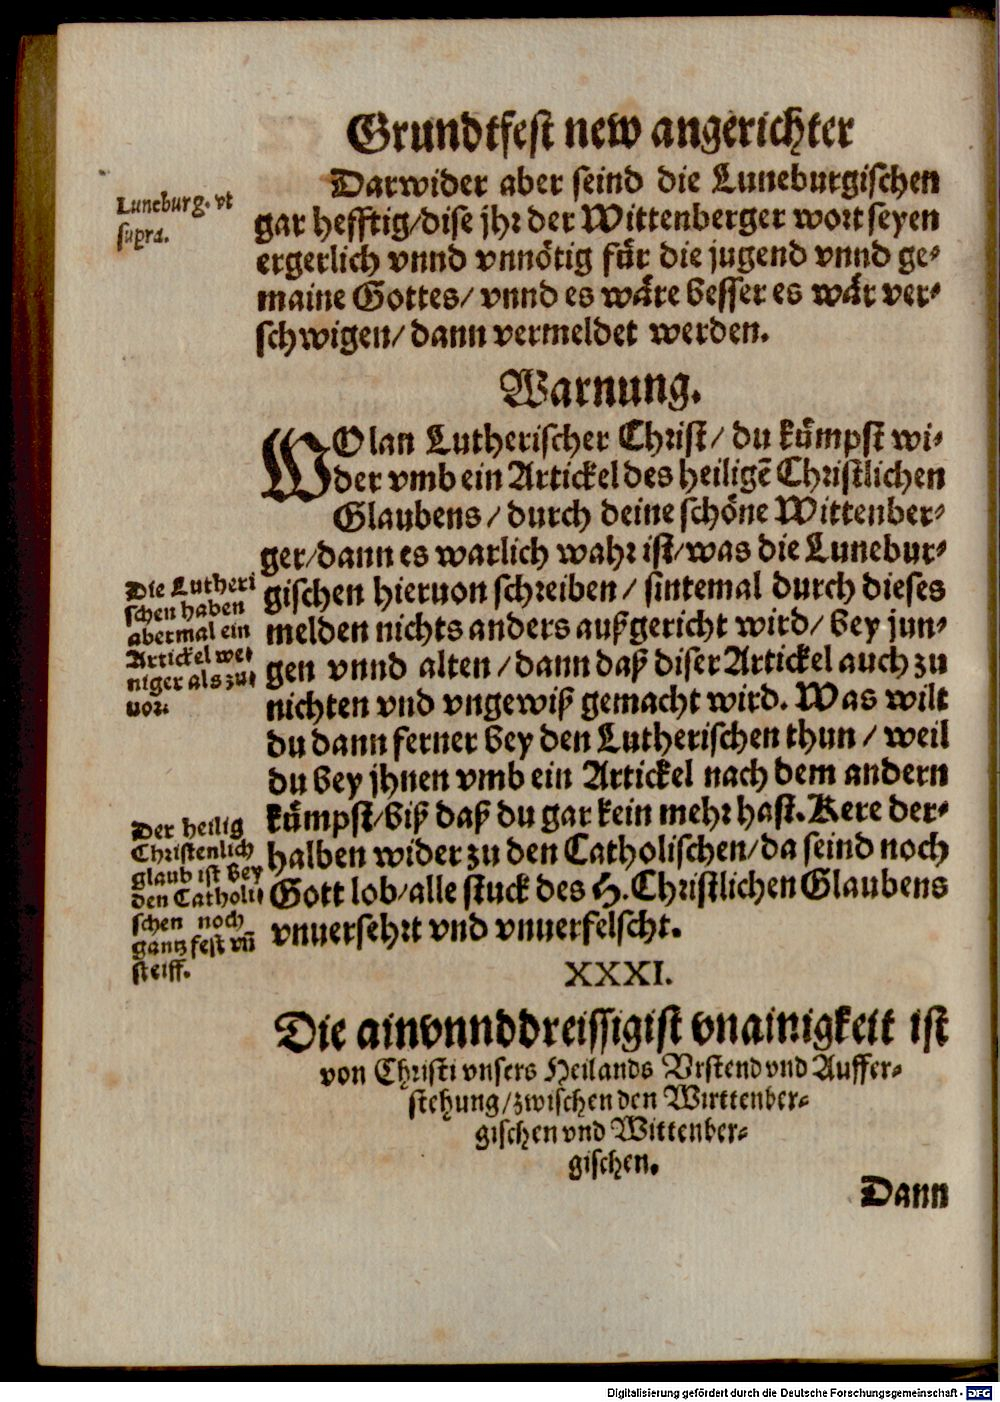 Grundtfest new angerichter
Darwider aber seind die Luneburgischen
gar hefftig/dise jhr der Wittenberger wort seyen
ergerlich vnnd vnnötig für die jugend vnnd ge-
maine Gottes/ vnnd es wäre besser es wär ver-
schwigen/ dann vermeldet werden.
Luneburg. vt
supra.
Warnung.
WOlan Lutherischer Christ/ du kümpst wi-
der vmb ein Artickel des heiligẽ Christlichen
Glaubens/ durch deine schöne Wittenber-
ger/dann es warlich wahr ist/was die Lunebur-
gischen hieruon schreiben/ sintemal durch dieses
melden nichts anders außgericht wird/ bey jun-
gen vnnd alten/dann daß diser Artickel auch zu
nichten vnd vngewiß gemacht wird. Was wilt
du dann ferner bey den Lutherischen thun/ weil
du bey jhnen vmb ein Artickel nach dem andern
kümpst/biß daß du gar kein mehr hast. Kere der-
halben wider zu den Catholischen/da seind noch
Gott lob/alle stuck des H. Christlichen Glaubens
vnuersehrt vnd vnuerfelscht.
Die Lutheri
schen haben
abermal ein
Artickel we-
niger als zu-
uor.
Der heilig
Christenlich
glaub ist bey
den Catholi-
schen noch
gantz fest vñ
steiff.
XXXI.
Die ainvnnddreissigist vnainigkeit ist
von Christi vnsers Heilands Vrstend vnd Auffer-
stehung/zwischen den Wirttenber-
gischen vnd Wittenber-
gischen.
Dann
Digitalisierung gefördert durch die Deutsche Forschungsgemeinschaft - DFG